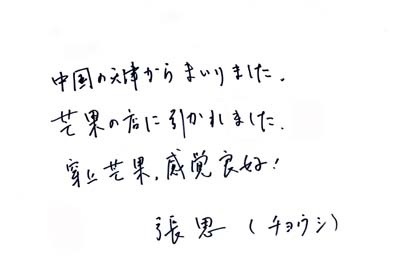 中国の天津からまいりました.
芒果の店に引かれました.
穿上芒果,感覚良好!
張思 (チョウシ)